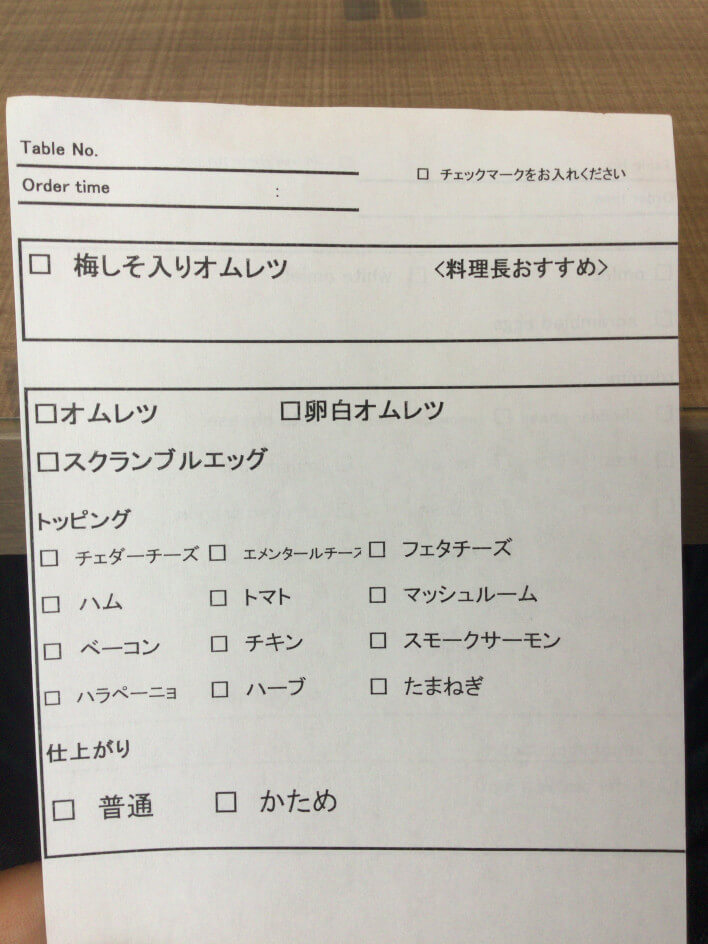 Table No.
Order time :
□ チェックマークをお入れください
□ 梅しそ入りオムレツ <料理長おすすめ>
□オムレツ □卵白オムレツ
□スクランブルエッグ
トッピング
□ チェダーチーズ □ エメンタールチーズ □ フェタチーズ
□ ハム □ トマト □ マッシュルーム
□ ベーコン □ チキン □ スモークサーモン
□ ハラペーニョ □ ハーブ □ たまねぎ
仕上がり
□ 普通 □ かため